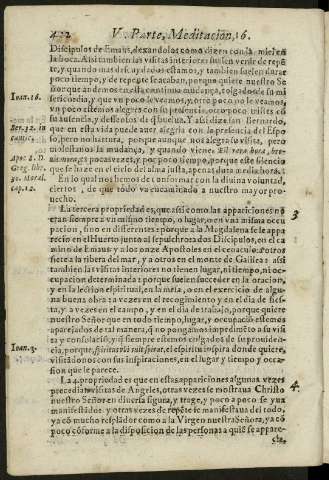 422 V. Parte, Meditacion, 16.
Discipulos de Emaus, dexandolos como dizen con la miel en
la boca. Assi tambien las visitas interiores suelen venir de repẽ
te, y quando mas descuydados estamos, y tambien suelen durar
poco tiempo, y de repẽte se acaban, porque quiere nuestro Se
ñor que andemos en esta continua mudança, colgados de su mi
sericordia, y que vn poco le veamos, y otro poco no le veamos,
vn poco estemos alegres con su presencia, otro poco tristes cõ
su ausencia, y desseosos de q̃ buelua. Y assi dize san Bernardo,
que en esta vida puede auer alegria con la presencia del Espo
so, pero no hartura, porque aunque nos alegra su visita, pero
molestanos la mudança, y quando viene. Et rara hora, bre-
uis mora, es pocas vezes, y por poco tiempo, porque este silencio
que se haze en el cielo del alma justa, apenas dura media hora:
En lo qual nos hemos de conformar con la diuina voluntad,
ciertos, de que todo va encaminado a nuestro mayor pro-
uecho.
La tercera propriedad es, que assi como las apariciones no
eran siempre a vn mismo tiempo, o lugar, o en vna misma ocu
pacion, sino en differentes: porque a la Magdalena se le apa
recio en el huerto junto al sepulchro: a dos Discipulos, en el ca
mino de Emaus: y a los onze Apostoles en el cenaculo: a otros
siete a la ribera del mar, y a otros en el monte de Galilea: assi
tambien las visitas interiores no tienen lugar, ni tiempo, ni oc-
cupacion determinada: porque suelen suceder en la oracion,
y en la lection espiritual, en la missa, o en el exercicio de algu-
na buena obra: a vezes en el recogimiento y en el dia de fies-
ta, y a vezes en el campo, y en el dia de trabajo, porque quiere
nuestro Señor que en todo tiempo, lugar, y occupaciõ estemos
aparejados de tal manera, q̃ no pongamos impedimẽto a su vi
sita y consolaciõ, y q̃ siempre estemos colgados de su prouiden-
cia, porque, spiritus vbi vult spirat, el espiritu inspira donde quiere,
visitãdonos con sus inspiraciones, en el lugar y tiempo y occa-
sion que le parece.
La 4. propriedad es que en estas apariciones algunas vezes
precedian vistas de Angeles, otras vezes se mostraua Christo
nuestro Señor en diuersa figura, y trage, y poco a poco se yua
manifestãdo: y otras vezes de repẽte se manifestaua del todo,
y cõ mucho resplãdor como a la Virgen nuestra Señora, ya cõ
poco: cõforme a la disposicion de las personas a quiẽ se appare-
cia.
Ioan. 16.
Ber. ser. 32. in
cantic.
Apoc. 8. D.
Greg. libr.
30. Moral.
cap. 12.
Ioan. 3.
3
4.